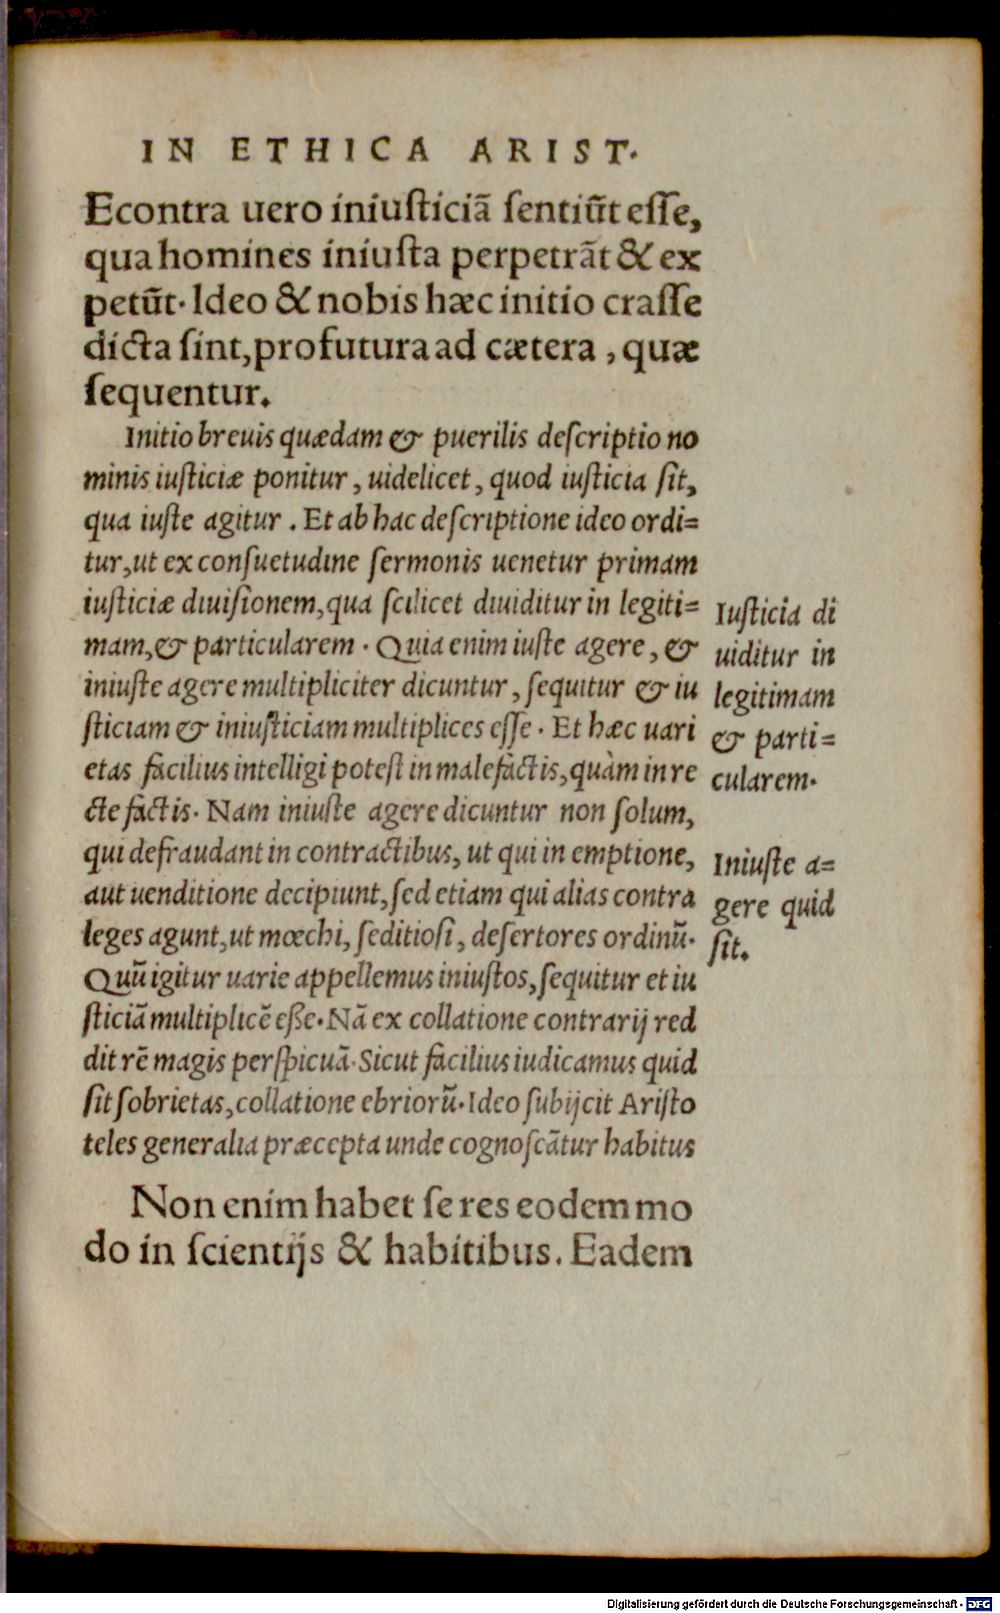 IN ETHICA ARIST.
Econtra uero iniusticiā sentiūt esse,
qua homines iniusta perpetrāt & ex
petūt. Ideo & nobis hæc initio crasse
dicta sint, profutura ad cætera, quæ
sequentur.
Initio breuis quædam & puerilis descriptio no
minis iusticiæ ponitur, uidelicet, quod iusticia sit,
qua iuste agitur. Et ab hac descriptione ideo ordi=
tur, ut ex consuetudine sermonis uenetur primam
iusticiæ diuisionem, qua scilicet diuiditur in legiti=
mam, & particularem. Quia enim iuste agere, &
iniuste agere multipliciter dicuntur, sequitur & iu
sticiam & iniusticiam multiplices esse. Et hæc uari
etas facilius intelligi potest in malefactis, quàm in re
cte factis. Nam iniuste agere dicuntur non solum,
qui defraudant in contractibus, ut qui in emptione,
aut uenditione decipiunt, sed etiam qui alias contra
leges agunt, ut mœchi, seditiosi, desertores ordinū.
Quū igitur uarie appellemus iniustos, sequitur et iu
sticiā multiplicē eße. Nā ex collatione contrarij red
dit rē magis perspicuā. Sicut facilius iudicamus quid
sit sobrietas, collatione ebriorū. Ideo subijcit Aristo
teles generalia præcepta unde cognoscātur habitus
Non enim habet se res eodem mo
do in scientijs & habitibus. Eadem
Iusticia di
uiditur in
legitimam
& parti=
cularem.
Iniuste a=
gere quid
sit.
Digitalisierung gefördert durch die Deutsche Forschungsgemeinschaft - DFG